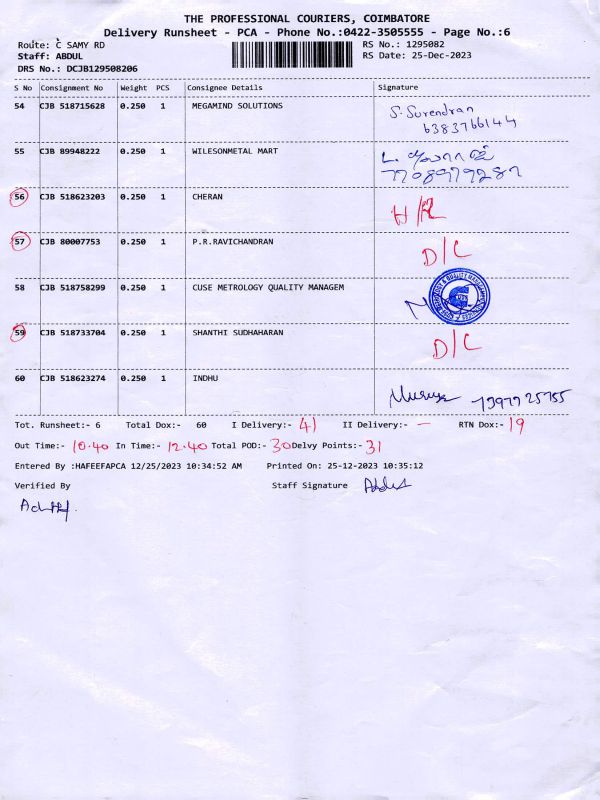 THE PROFESSIONAL COURIERS, COIMBATORE
Delivery Runsheet - PCA - Phone No.:0422-3505555 - Page No.:6
Route: C SAMY RD RS No.: 1295082
Staff: ABDUL RS Date: 25-Dec-2023
DRS No.: DCJB129508206
S No Consignment No Weight PCS Consignee Details Signature
54 CJB 518715628 0.250 1 MEGAMIND SOLUTIONS S. Surendran
6383766144
55 CJB 89948222 0.250 1 WILESONMETAL MART
7708979287
56 CJB 518623203 0.250 1 CHERAN H/R
57 CJB 80007753 0.250 1 P.R.RAVICHANDRAN D/C
58 CJB 518758299 0.250 1 CUSE METROLOGY QUALITY MANAGEM
59 CJB 518733704 0.250 1 SHANTHI SUDHAHARAN D/C
60 CJB 518623274 0.250 1 INDHU
Tot. Runsheet:- 6 Total Dox:- 60 I Delivery:- 41 II Delivery:- — RTN Dox:- 19
Out Time:- 10.40 In Time:- 12.40 Total POD:- 30 Delvy Points:- 31
Entered By :HAFEEFAPCA 12/25/2023 10:34:52 AM Printed On: 25-12-2023 10:35:12
Verified By Staff Signature